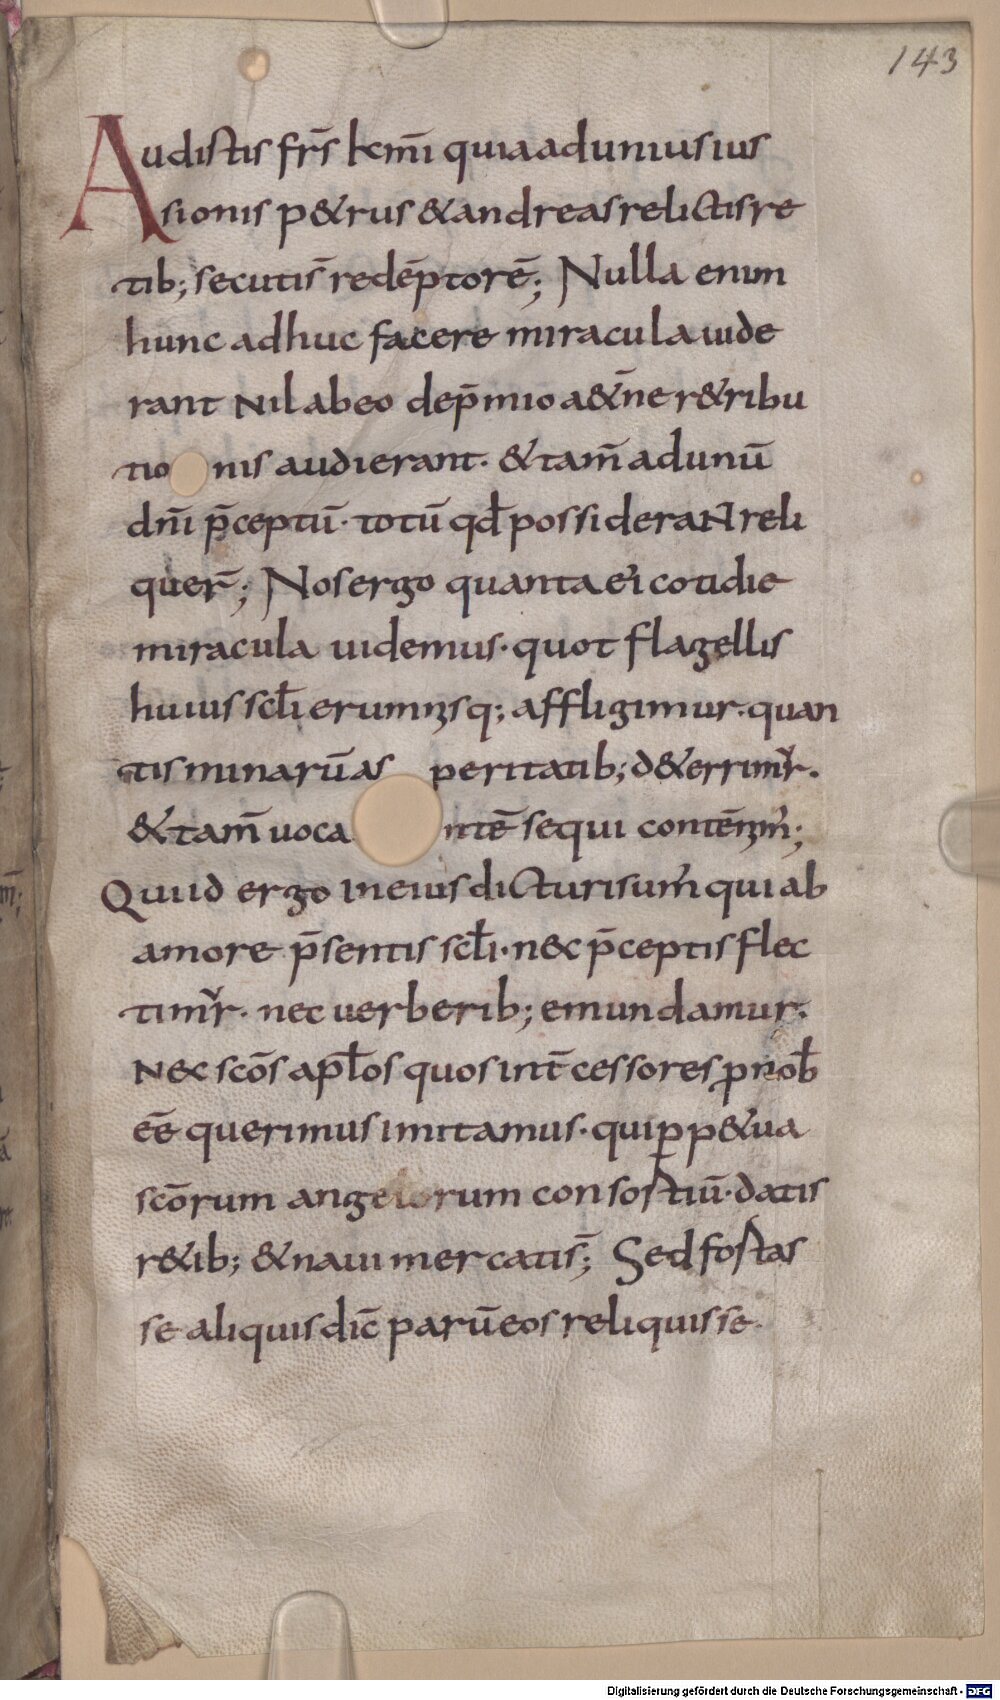 143
Audistis fr̄s km̄i quia ad unius ius
sionis p&rus & andreas relictis re
tib; secuti s̄ redēptorē; Nulla enim
hunc adhuc facere miracula uide
rant Nil ab eo de p̄mio a&n̄e r&ribu
tionis audierant· & tam̄ ad unū
dn̄i p̄ceptū· totū qđ possideraNt reli
quer̄; Nos ergo quanta ei cotidie
miracula uidemus· quot flagellis
huius scl̄i erumnisq; affligimur· quan
tis minarū as peritatib; d&errimr̄.
& tam̄ uocantē sequi contēnim̄;
Quid ergo in eius dicturi sum̄ qui ab
amore p̄sentis scl̄i· nec p̄ceptis flec
timr̄· nec uerberib; emundamur·
Nec scōs apl̄os quos int̄cessores p nob̄
eē querimus imitamus· qui p p&ua
scōrum angelorum consortiū· datis
r&ib; & naui mercati s̄; Sed fortas
se aliquis dic̄ parū eos reliquisse·
Digitalisierung gefördert durch die Deutsche Forschungsgemeinschaft - DFG